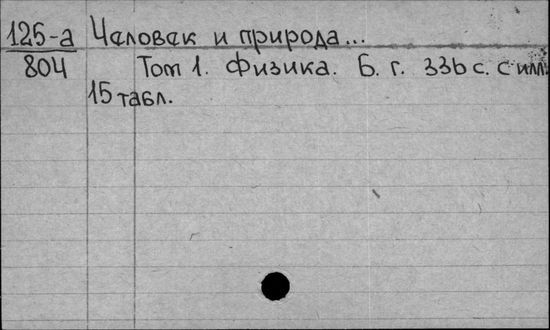 125-а Человек и природа...
804 Том 1. Физика. Б. г. 336 с. с илл.
15 табл.